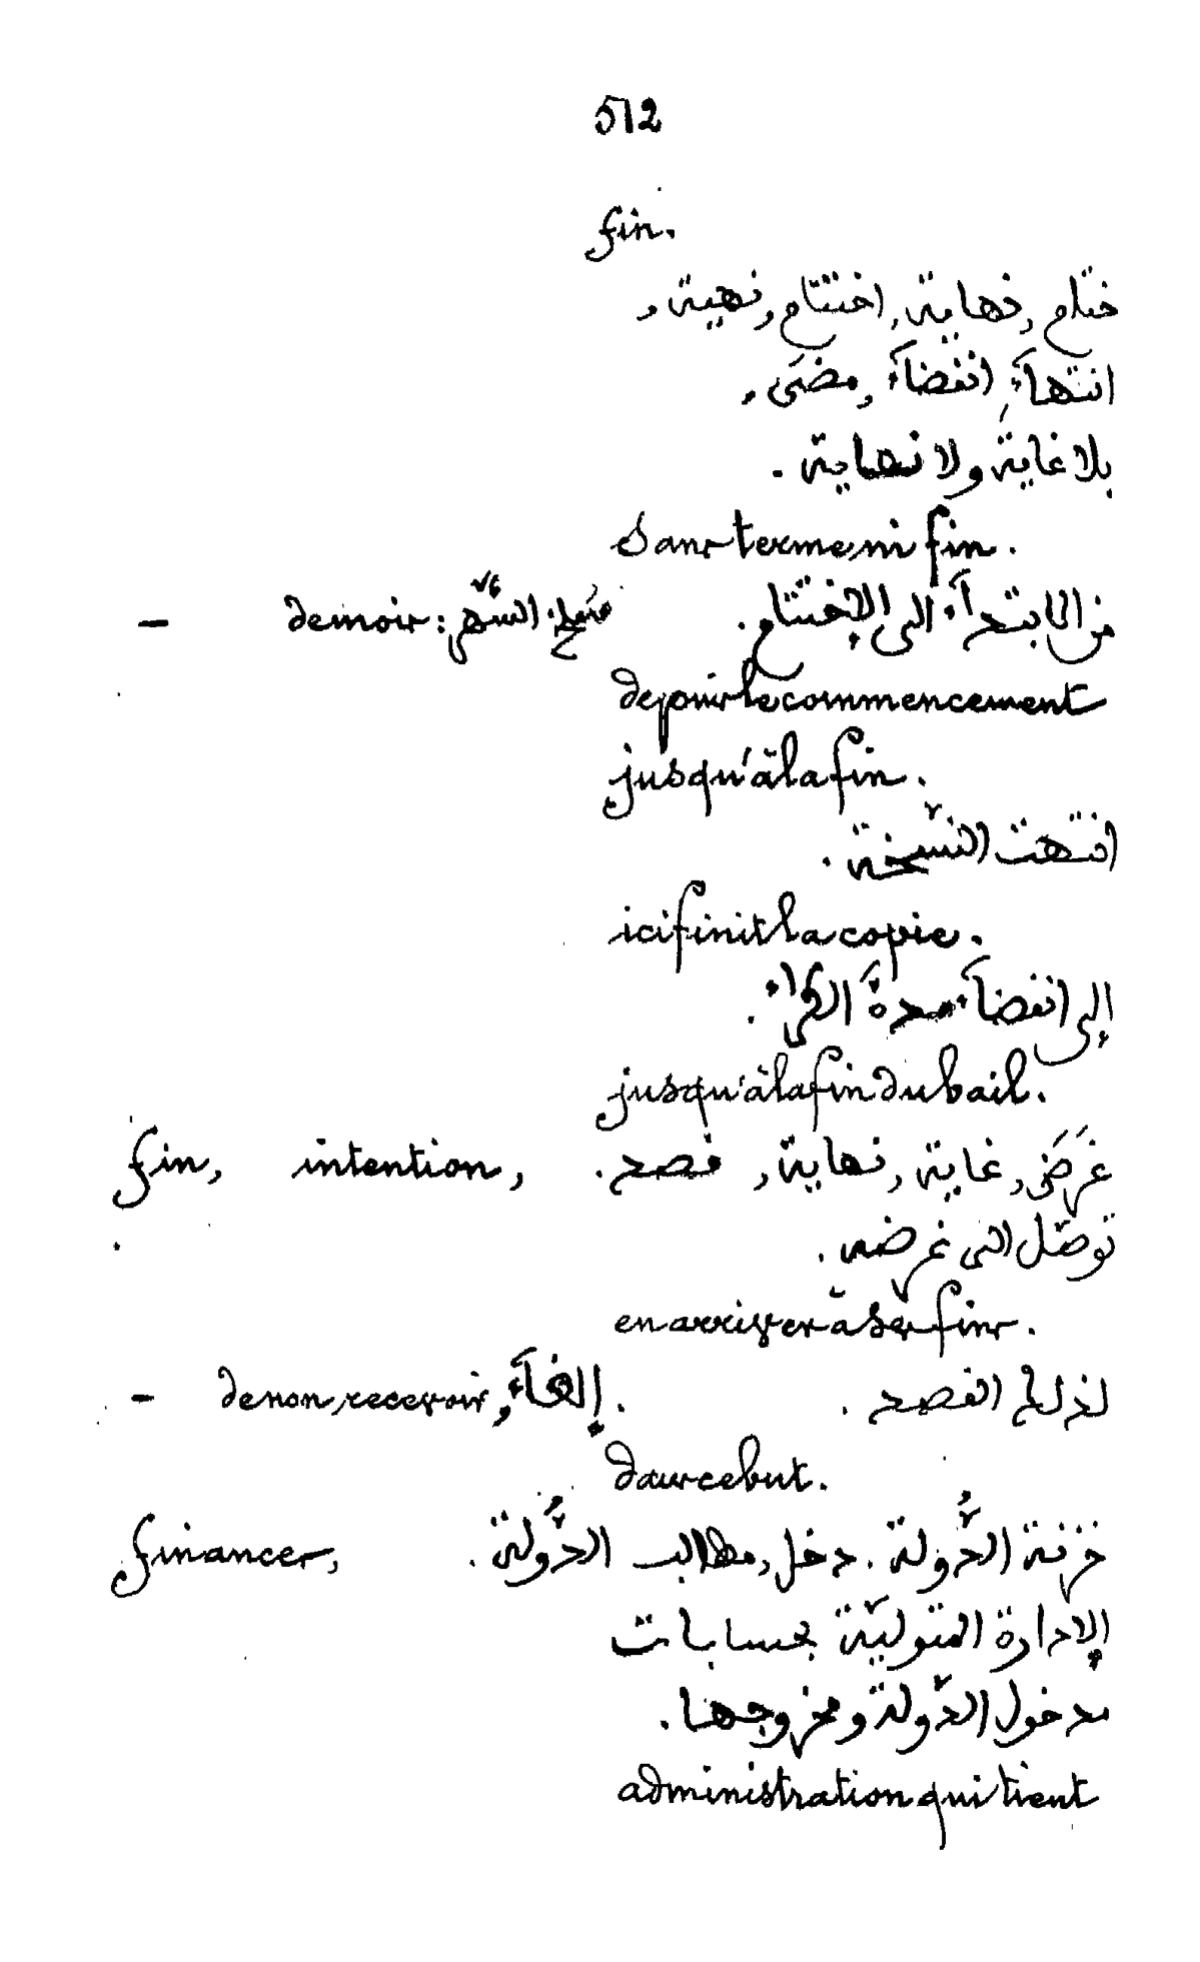 512
fin.
ختام, نهاية, اختتام, نهية,
انتهآء, انقضآء, مضى,
بلا غاية ولا نهاية.
Sans terme, ni fin.
من الابتدآء الى الإختتام.
- de mois: سَلخ. الشّهر
depuis le commencement
jusqu'à la fin.
انتهت النّسخة.
ici finit la copie.
إلى انقضآء مدّة الكرآء.
jusqu'à la fin du bail.
fin, intention, غَرَض, غاية, نهاية, قصد.
توصّل الى غرضه.
en arriver à ses fins.
لذلك القصد.
- de non, recevoir, إلغآء.
dans ce but.
finances, خزنة الدَّولة. دخل, مطالب الدَّولة.
الإدارة المتوليّة بحسابات
مدخول الدّولة ومخروجها.
administration qui tient